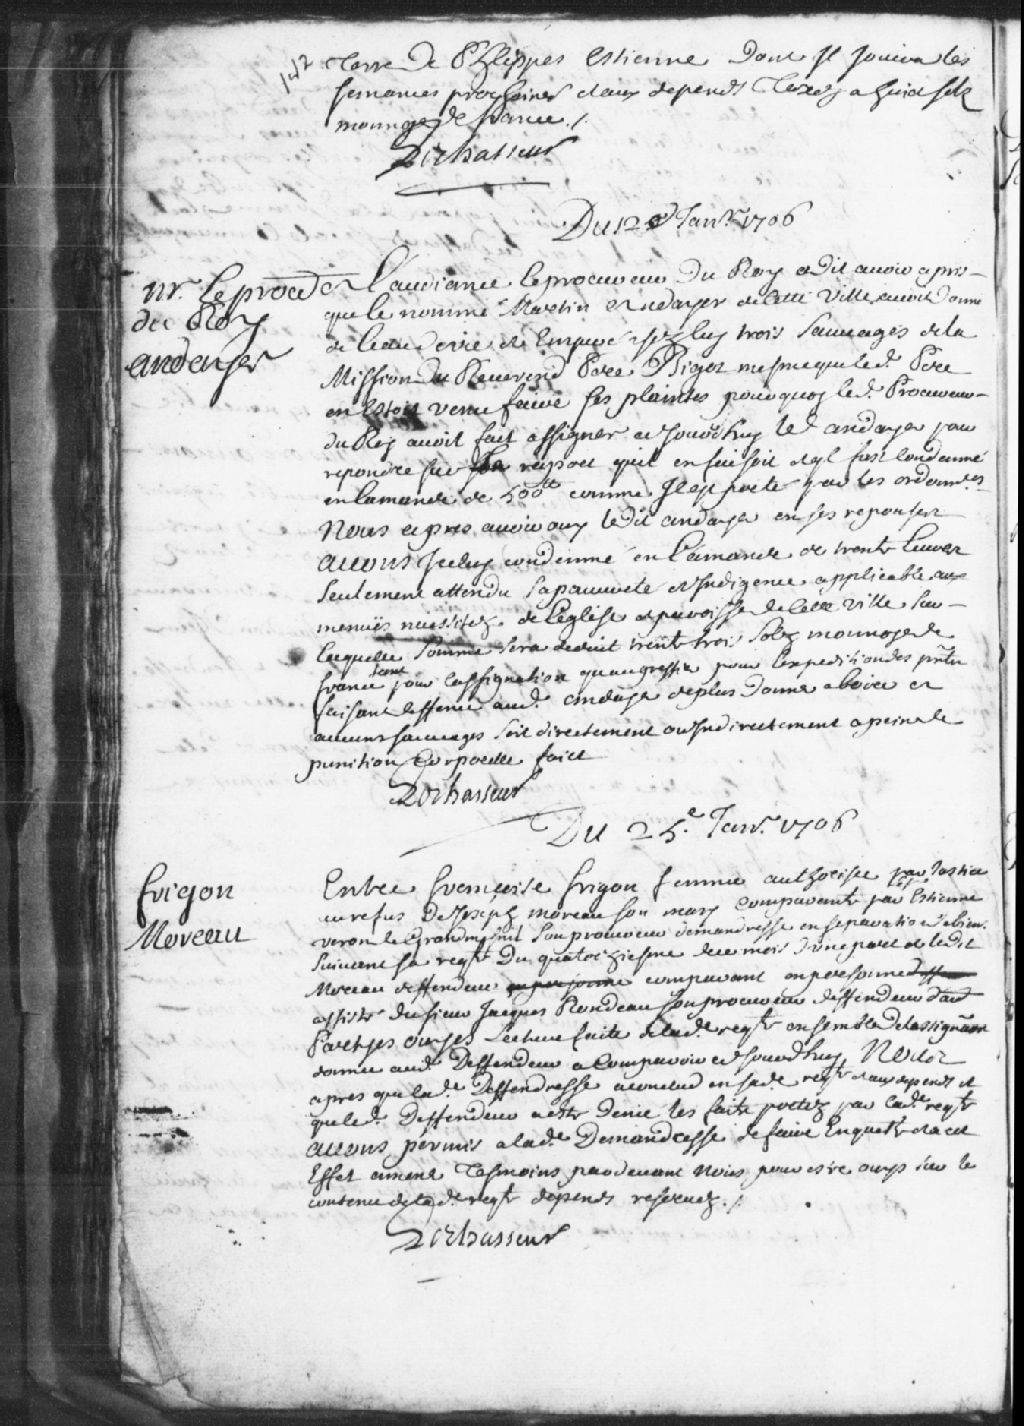 142
Terre de Phlippes Estienne dont Jl Jouira les
semaines prochaines et aux depends Taxez a huid solz
monnoye de france /
LeChasseur
Du 12e Janvr. 1706
Mr. le procr
du Roy
andayer
a L'audiance le procureur Du Roy a dit avoir apris
que le nommé Martin andayer de cette ville auroit donné
de leau de vie et Enyvré chez luy trois Sauvages de la
Mission du Reverend Pere Bigot mesme que led. Pere
en Estoit venu faire ses plaintes pourquoy led. Procureur
du Roy auroit fait assigner a Jourdhuy led andayer pour
repondre sur raport quil en faisoit et ql fust Condamné
en Lamande de 500tt comme Jl est porté par les ordonces
Nous apres avoir ouy ledit andayer en ses reponses
avons Jceluy condemné en L'amande de trente Livres
seulement attendu sa pauvreté et Jndigence applicable aux
menües necessitez de Leglise et paroisse de Cette ville sur
laquelle somme sera deduit trente trois solz monnoye de
france tant pour Lassignation quau greffier pour Lexpedition des pntes
faisant deffence aud. andayer de plus donner a boire a
aucuns sauvages soit directement ou Jndirectement a peine de
punition Corporelle faict
LeChasseur
Du 25.e Janr. 1706
frigon
Moreau
Entre francoise frigon femme authorisée par Justice
au refus de Joseph moreau son mary comparante par Estienne
veron le Grandmesnil son procureur demanderesse en separation de biens
suivant sa reqte Du quatorziesme de ce mois d'une part et ledit
Moreau deffendeur en personne comparant en personne
assisté du sieur Jacques Rondeau son procureur deffendeur d'aute
Part, parties ouyes Lecture faite de lad. reqte ensemble de lassignaon
donnée aud. Deffendeur a Comparoir a Jourdhuy Nous
apres que lad. Deffendresse a conclud en sad. reqte et aux depends et
que led. Deffendeur a este Denié les faits portez par lad. reqte
avons permis a lad. Demandresse de faire Enqueste et a cet
Effet amener Tesmoins pardevant Nous pour estre ouys sur le
contenu de lad. reqte depends reservez /
LeChasseur